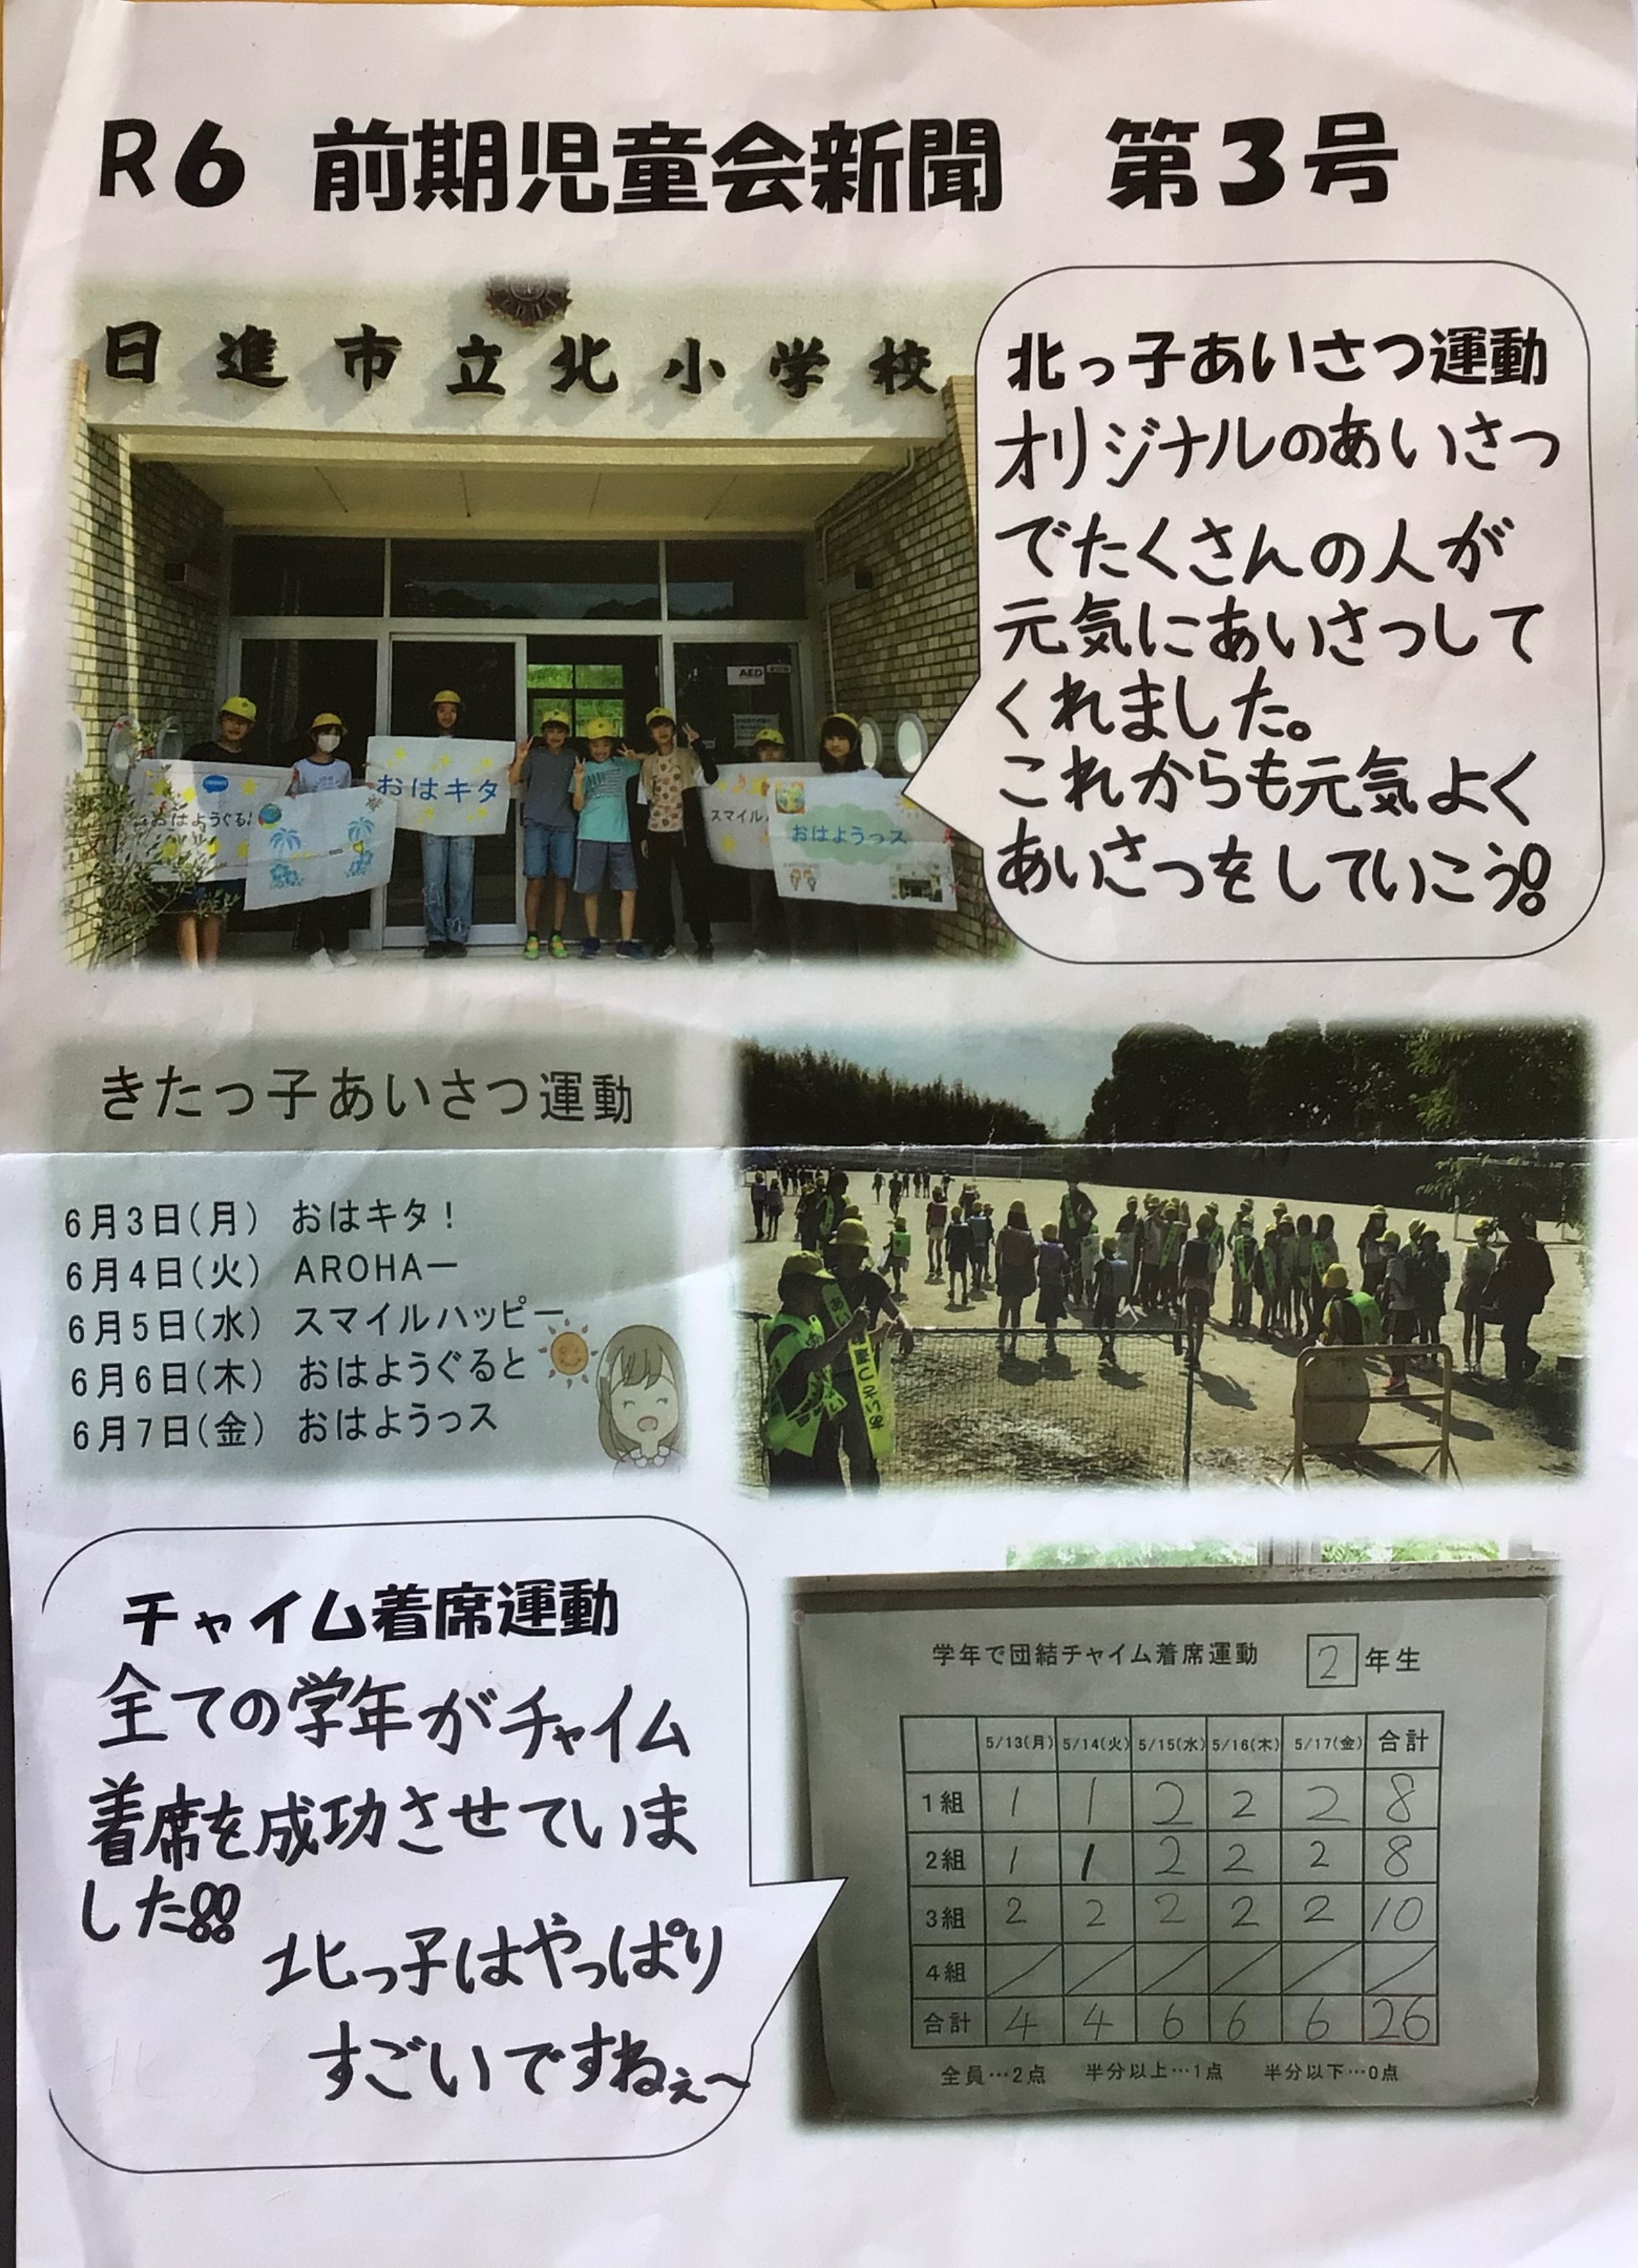 R6 前期児童会新聞 第3号
日進市立北小学校
AED
おはようぐる
おはキタ
スマイル
おはようっス
北っ子あいさつ運動
オリジナルのあいさつ
でたくさんの人が
元気にあいさつして
くれました。
これからも元気よく
あいさつをしていこう!
きたっ子あいさつ運動
6月3日(月) おはキタ!
6月4日(火) AROHAー
6月5日(水) スマイルハッピー
6月6日(木) おはようぐると
6月7日(金) おはようっス
チャイム着席運動
全ての学年がチャイム
着席を成功させていま
した!!
北っ子はやっぱり
すごいですねぇ~
学年で団結チャイム着席運動 2年生
5/13(月) 5/14(火) 5/15(水) 5/16(木) 5/17(金) 合計
1組 1 1 2 2 2 8
2組 1 1 2 2 2 8
3組 2 2 2 2 2 10
4組
合計 4 4 6 6 6 26
全員…2点 半分以上…1点 半分以下…0点